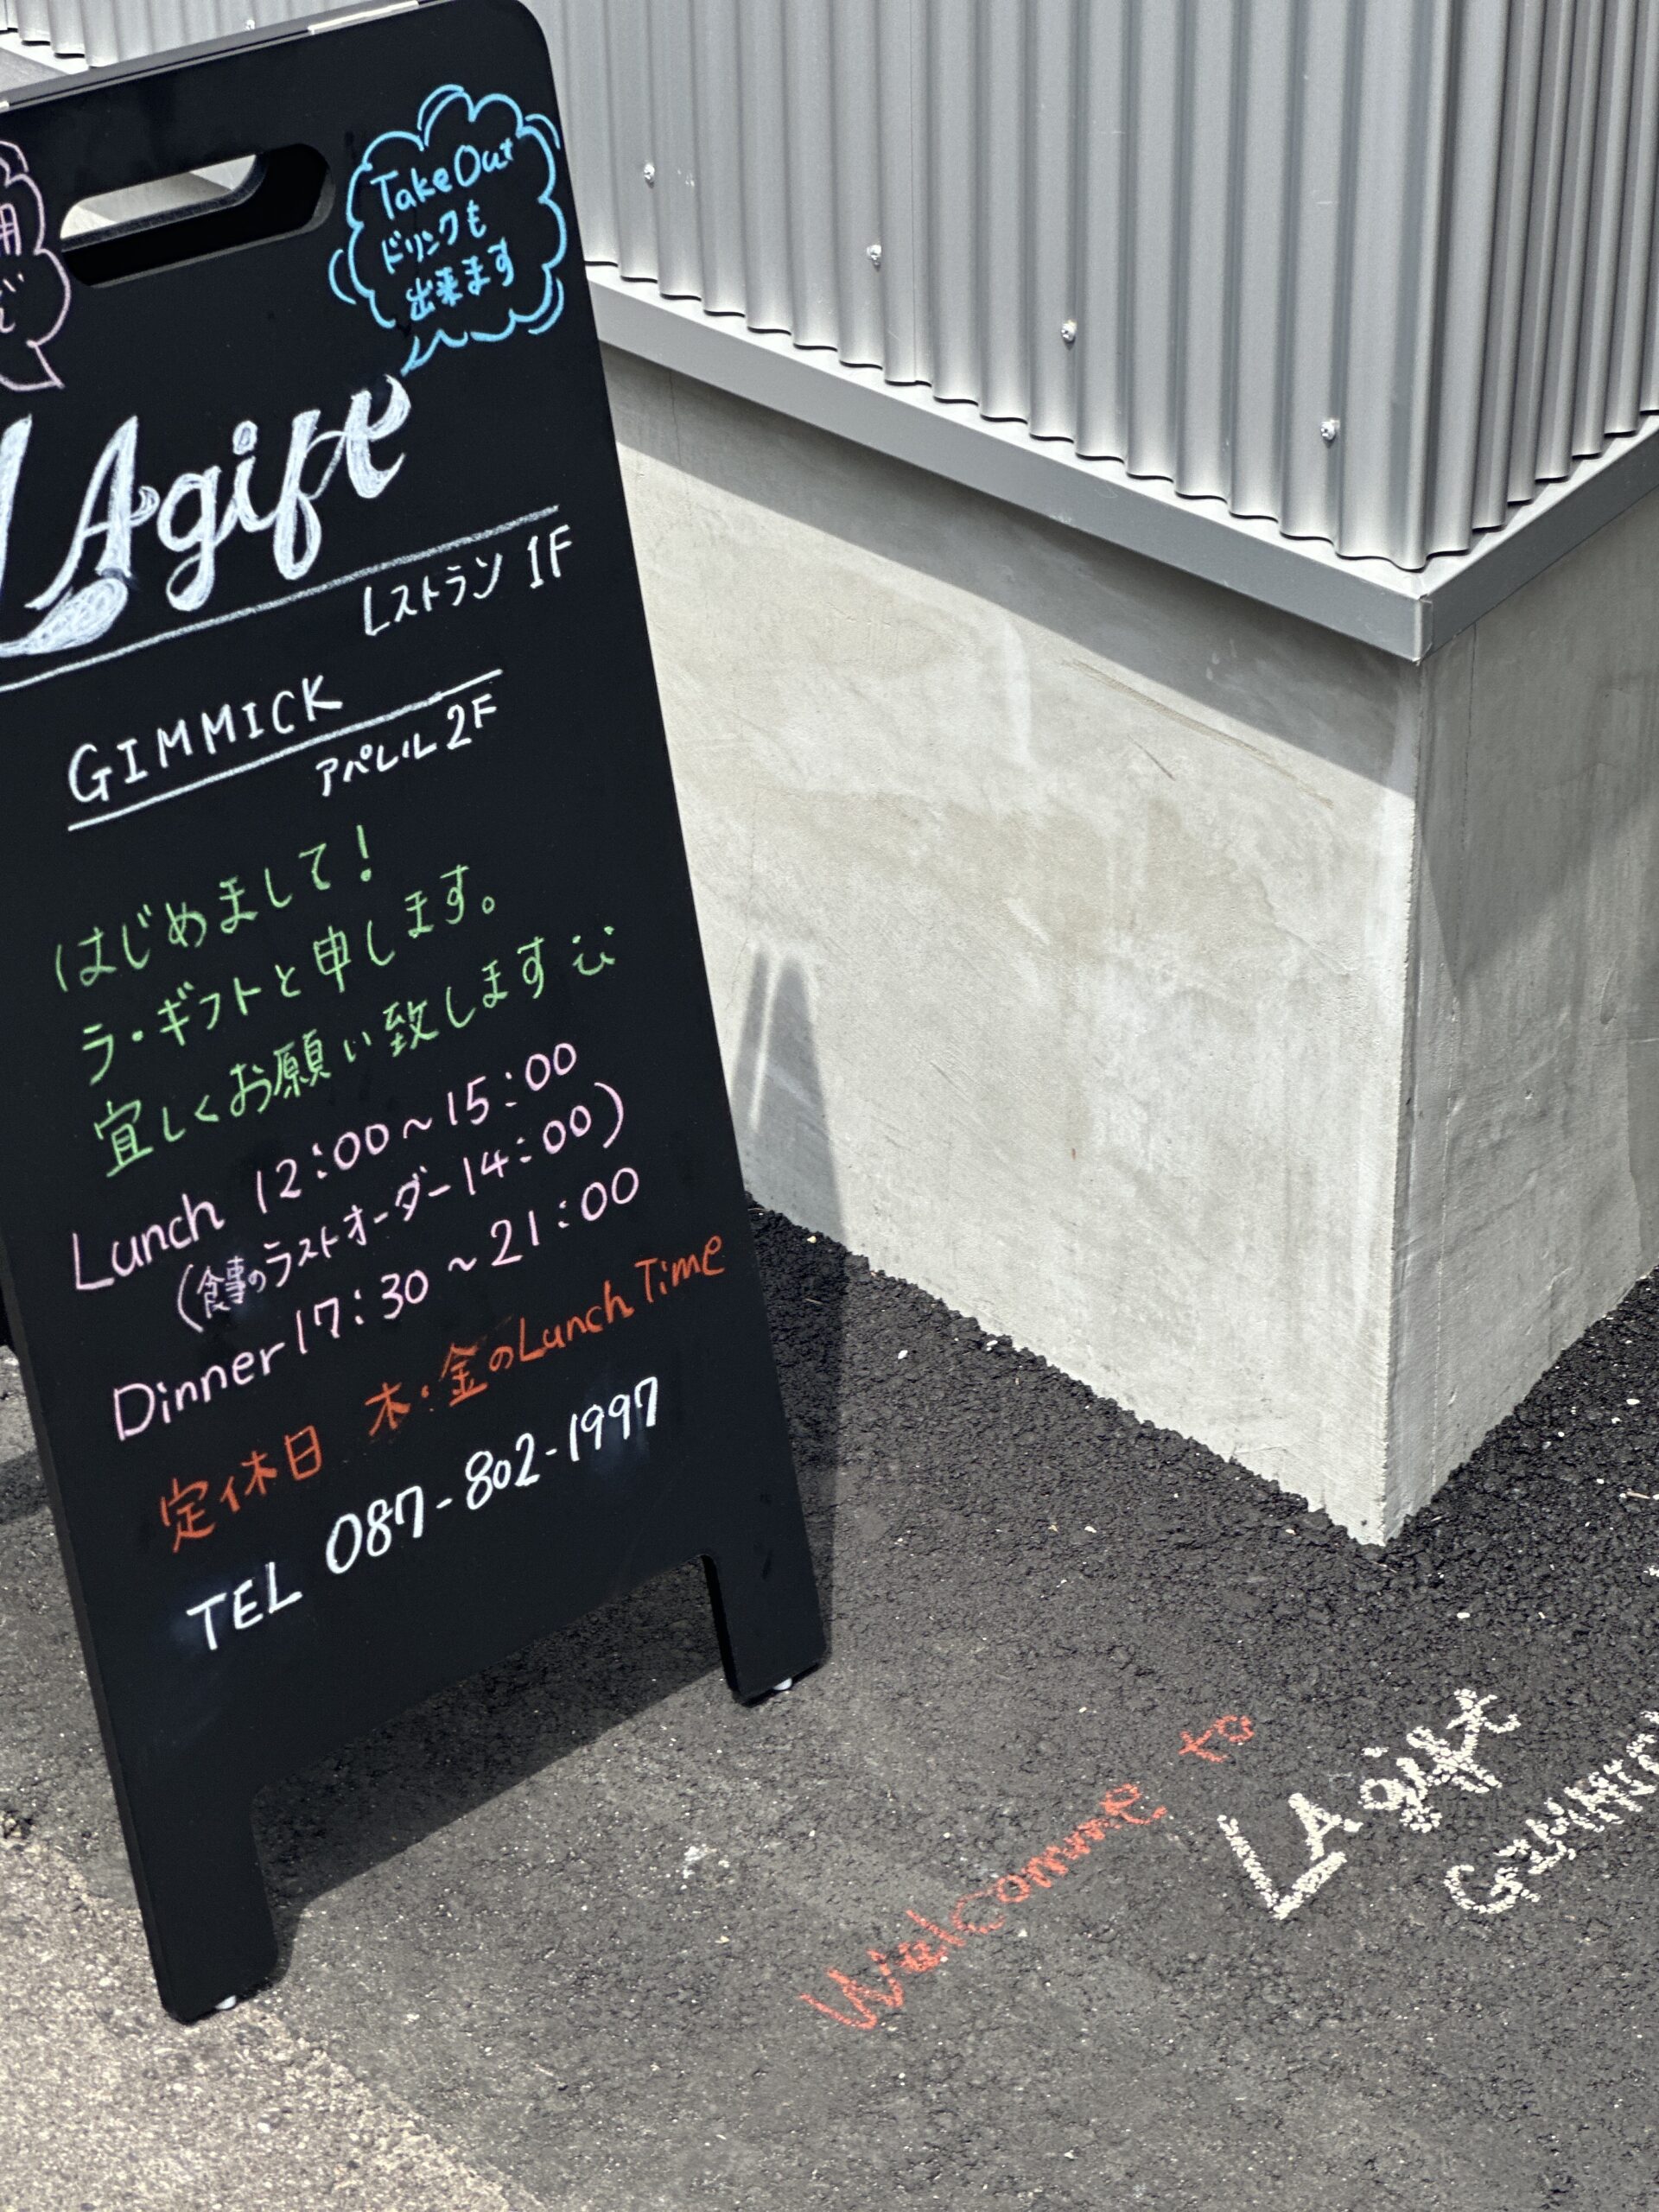 Take Out
ドリンクも
出来ます
LAgift
レストラン 1F
GIMMICK
アパレル 2F
はじめまして!
ラ・ギフトと申します。
宜しくお願い致します
Lunch 12:00~15:00
(食事のラストオーダー14:00)
Dinner 17:30~21:00
定休日 木・金のLunch Time
TEL 087-802-1997
Welcome to
LAgift
GIMMICK